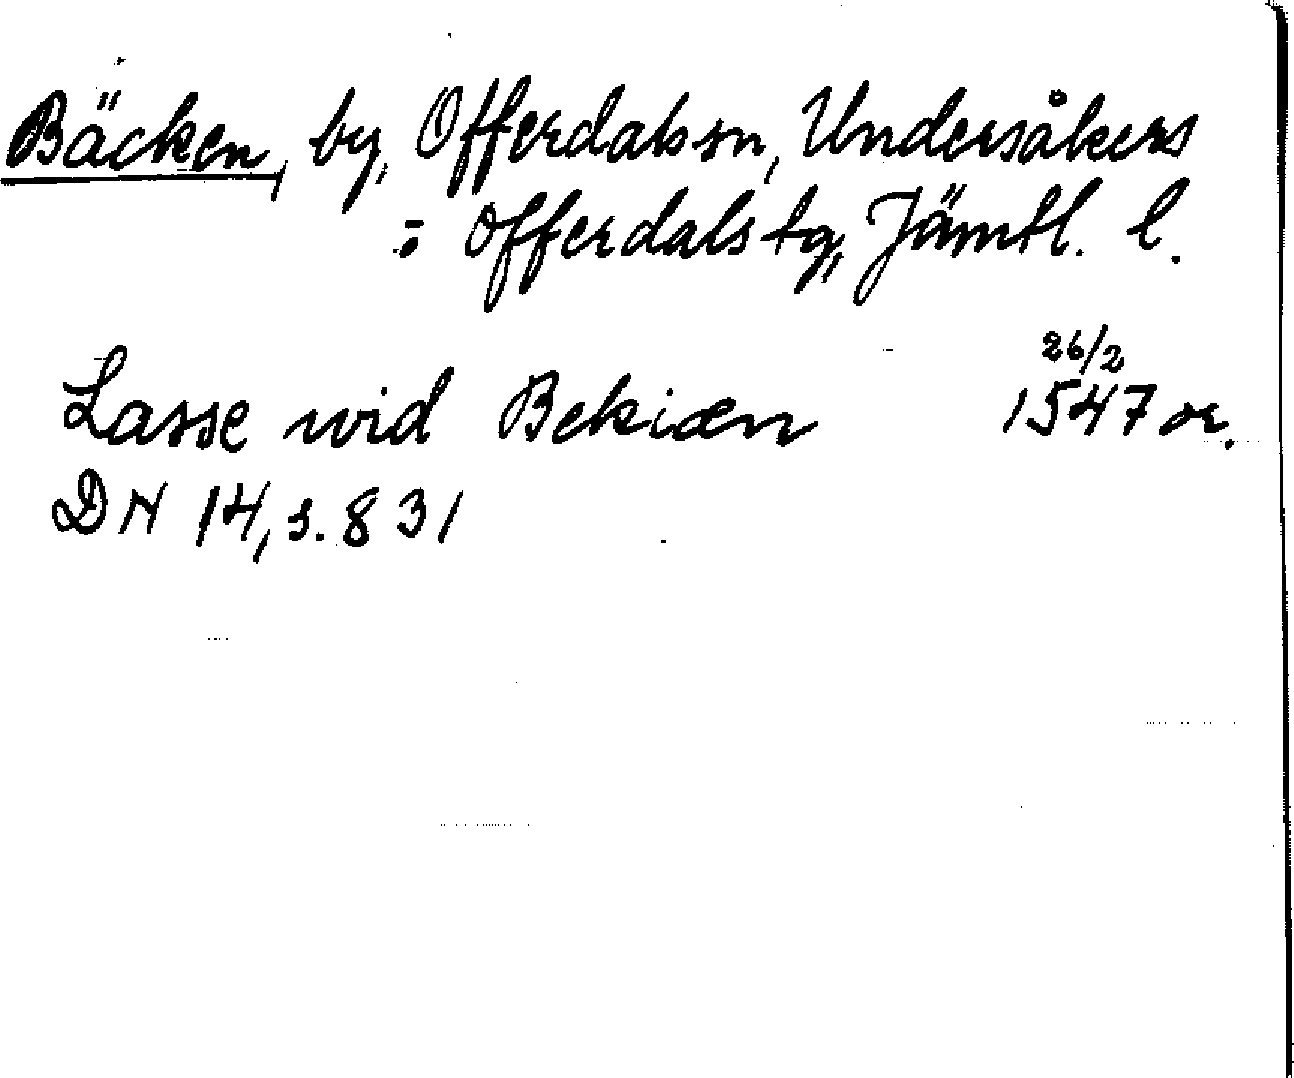 Bäcken, by, Offerdals sn, Undersåkers
: Offerdals tg, Jämtl. l.
26/2
Lasse wid Bekiæn 1547 or.
DN 14, s. 831